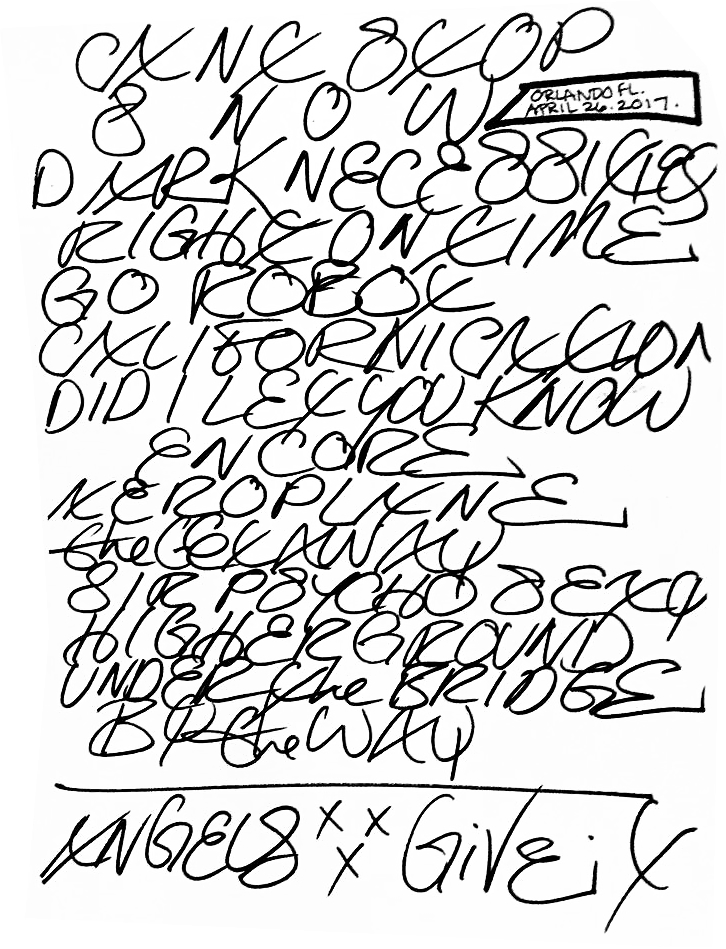 CANT STOP
SNOW
ORLANDO FL.
APRIL 26.2017.
DARK NECESSITIES
RIGHT ON TIME
GO ROBOT
CALIFORNICATION
DID I LET YOU KNOW
ENCORE
AEROPLANE
the GETAWAY
SIR PSYCHO SEXY
HIGHER GROUND
UNDER the BRIDGE
BY the WAY
ANGELS x x x GiVE iT